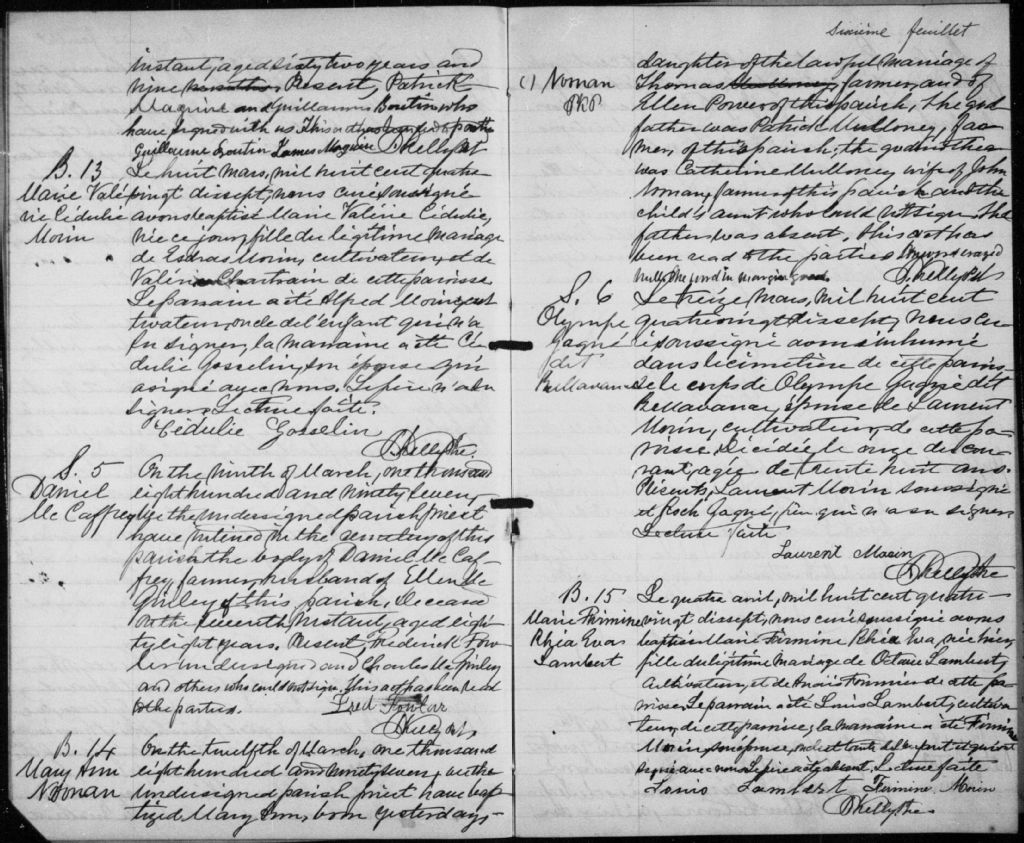 instant, aged sixty two years and
nine months. Present, Patrick
Maguire and Guillaume Boutin who
have signed with us. This act has been read to the parties
Guillaume Boutin James Maguire
B. 13
Marie Valé-
rie Cédulie
Morin
Le huit mars, mil huit cent quatre
vingt dixsept, nous curé soussigné
avons baptisé Marie Valérie Cédulie,
née ce jour, fille du légitime mariage
de Esdras Morin, cultivateur, et de
Valérie Chartrain de cette paroisse
Le parrain a été Alfred Morin, cul-
tivateur, oncle de l'enfant qui n'a
su signer, la marraine a été Cé-
dulie Gosselin, son épouse qui
a signé avec nous. Le père n'a su
signer. Lecture faite.
Cédulie Gosselin
S. 5
Daniel
Mc Caffrey
On the ninth of March, one thousand
eight hundred and ninety seven,
we the undersigned parish priest
have interred in the cemetery of this
parish the body of Daniel Mc Caf-
frey, farmer, husband of Ellen Mc
Ginley of this parish, deceased
on the seventh instant, aged eigh-
ty eight years. Present, Frederick Fow-
ler undersigned and Charles Mc Ginley
and others who could not sign, this act has been read
to the parties.
Fred Fowlar
B. 14
Mary Ann
Noonan
On the twelfth of March, one thousand
eight hundred and ninety seven, we the
undersigned parish priest have bap-
tized Mary Ann, born yesterday,
sixième feuillet
(1) Noonan
daughter of the lawful marriage of
Thomas Mulloney, farmer, and of
Ellen Power of this parish. The god
father was Patrick Mulloney, far-
mer, of this parish, the godmother
was Catherine Mulloney wife of John
Noonan, farmer of this parish and the
child's aunt who could not sign. The
father was absent. This act has
been read to the parties One word erased
null, the word in margin good
S. 6
Olympe
Gagné
dit
Bellavance
Le treize mars, mil huit cent
quatrevingt dixsept, nous cu-
ré soussigné avons inhumé
dans le cimetière de cette parois-
se le corps de Olympe Gagné dit
Bellavance, épouse de Laurent
Morin, cultivateur, de cette pa-
roisse, décédée le onze du cou-
rant, agée de trente huit ans.
Présents, Laurent Morin soussigné
et Roch Gagné, père qui n'a su signer
Lecture faite
Laurent Morin
B. 15
Marie Firmine
Rhéa Eva
Lambert
Le quatre avril, mil huit cent quatre-
vingt dixsept, nous curé soussigné avons
baptisé Marie Firmine Rhéa Eva, née hier,
fille du légitime mariage de Octave Lambert,
cultivateur, et de Anaïs Fournier de cette pa-
roisse. Le parrain a été Louis Lambert, cultiva-
teur, de cette paroisse, la marraine a été Firmine
Morin son épouse, oncle et tante de l'enfant et qui ont
signé avec nous. Le père a été absent. Lecture faite
Louis Lambert Firmine Morin